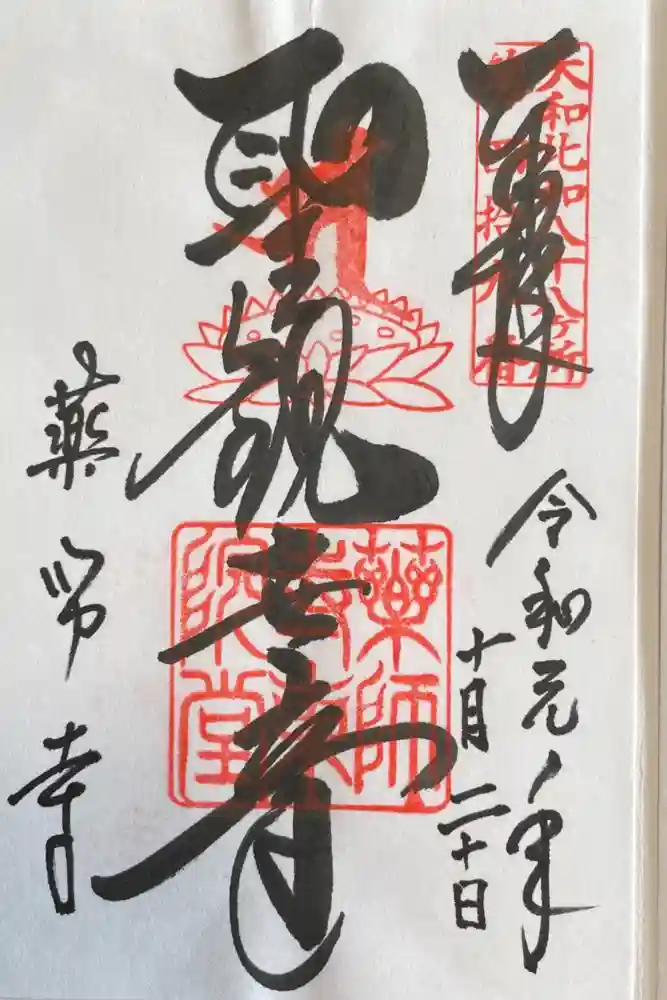 奉拝
大和北部八十八ヶ所
令和元年
十月二十日
聖観世音
藥師
寺東
院堂
薬師寺